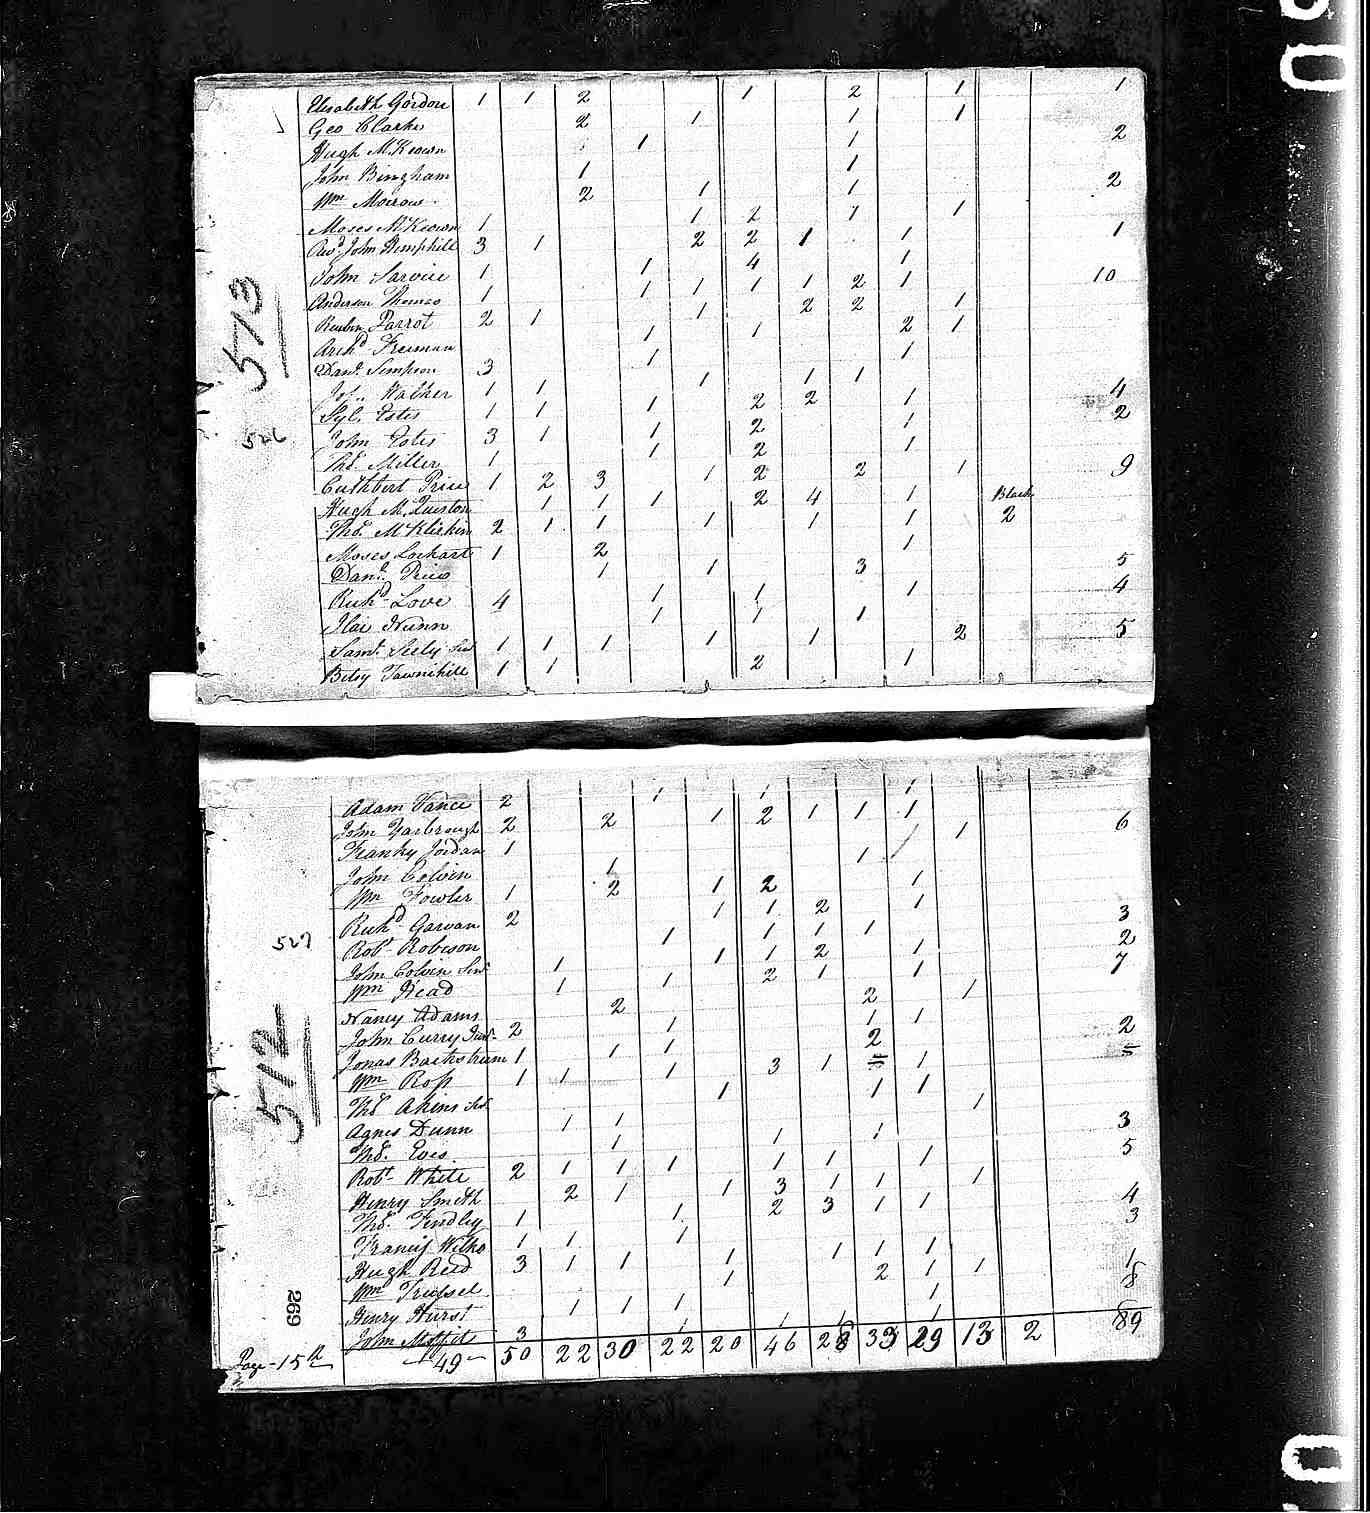 Elisabeth Gordon 1 1 2 1 2 1 1
Geo Clarke 2 1 1 1
Hugh McKeown 1 1 2
John Bingham 1 1
Wm Morrow 2 1 1 2
Moses McKeown 1 1 2 1
Revd John Hemphill 3 1 2 2 1 1 1
John Sarvice 1 1 4 1
Anderson Thomas 1 1 1 1 1 2 1 10
Reuben Parrot 2 1 1 2 2 1
Archd Freeman 1 1 2 1
Danl. Simpson 3 1 1
Jos. Walker 1 1 1 1 1 4
Syl. Estes 1 1 1 2 2 1 2
John Estes 3 1 1 2 1
Thos. Miller 1 1 2 1
Cuthbert Price 1 2 3 1 2 2 1 9
Hugh McQuiston 1 1 1 2 4 1 Black
Thos. McKlickin 2 1 1 1 1 1 2
Moses Lockart 1 2 1
Danl. Price 1 1 3 5
Richd Love 4 1 1 1 4
Ilai Nunn 1 1 1
Saml. Seely Senr 1 1 1 1 1 2 5
Betsy Tawnihill 1 1 2 1
573
526
Adam Vance 2 1 1 1
John Yarbrough 2 2 1 2 1 1 1 6
Franky Jordan 1 1
John Colvin 1 1
Wm Fowler 1 2 1 2 1
Richd Garvan 2 1 1 2 1 3
Robt Robison 1 1 1 1 2
John Colvin Senr 1 1 1 2 1 7
Wm Head 1 1 2 1 1
Nancy Adams 2 2 1
John Curry Junr 2 1 1 1 2
Jonas Backstrum 1 1 1 2 5
Wm Ross 1 1 1 3 1 1
Thos Akins Sr 1 1 1
Agnes Dunn 1 1 1 3
Thos. Eves 1 1 1 5
Robt White 2 1 1 1 1 1 1
Henry Smith 2 1 1 3 1 1 1 4
Thos. Findley 1 1 2 3 1 1 3
Francis Wilks 1 1 1
Hugh Reed 3 1 1 1 1 1 1 1
Wm Trussel 1 2 1 1 8
Henry Hurst 1 1 1 1
John Moffit 3 1 1 1 1
Page - 15th 49 50 22 30 22 20 46 28 33 29 13 2 89
527
512
269